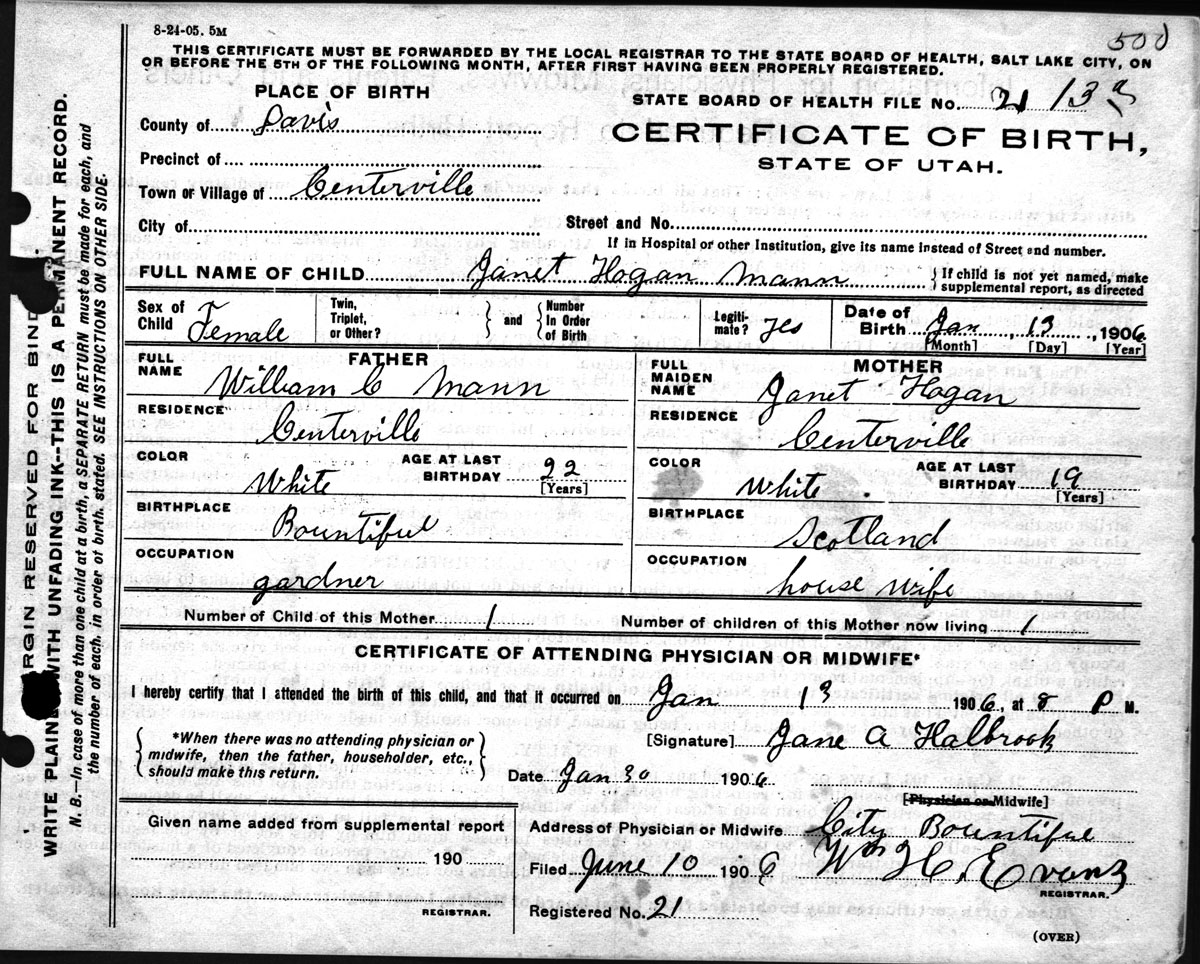 8-24-05. 5M
500
THIS CERTIFICATE MUST BE FORWARDED BY THE LOCAL REGISTRAR TO THE STATE BOARD OF HEALTH, SALT LAKE CITY, ON
OR BEFORE THE 5TH OF THE FOLLOWING MONTH, AFTER FIRST HAVING BEEN PROPERLY REGISTERED.
PLACE OF BIRTH
STATE BOARD OF HEALTH FILE No. 21 13
County of Davis
CERTIFICATE OF BIRTH,
STATE OF UTAH.
Precinct of
Town or Village of Centerville
City of Street and No.
If in Hospital or other Institution, give its name instead of Street and number.
FULL NAME OF CHILD Janet Hogan Mann { If child is not yet named, make
supplemental report, as directed
Sex of Child Female Twin, Triplet, or Other? } and { Number In Order of Birth Legiti-mate? yes Date of Birth Jan, 13, 1906
[Month] [Day] [Year]
FATHER
FULL NAME William C Mann
RESIDENCE
Centerville
COLOR White AGE AT LAST BIRTHDAY 22 [Years]
BIRTHPLACE
Bountiful
OCCUPATION
gardner
MOTHER
FULL MAIDEN NAME Janet Hogan
RESIDENCE
Centerville
COLOR White. AGE AT LAST BIRTHDAY 19 [Years]
BIRTHPLACE
Scotland
OCCUPATION
house wife
Number of Child of this Mother 1 Number of children of this Mother now living 1
CERTIFICATE OF ATTENDING PHYSICIAN OR MIDWIFE*
I hereby certify that I attended the birth of this child, and that it occurred on Jan 13 1906, at 8 P M.
{ *When there was no attending physician or
midwife, then the father, householder, etc.,
should make this return. }
[Signature] Jane A Halbrook
Date Jan 30 1906
[Physician or Midwife]
Given name added from supplemental report
190
REGISTRAR.
Address of Physician or Midwife City Bountiful
Filed June 10 1906 Wm H. Evans
REGISTRAR.
Registered No. 21
(OVER)
MARGIN RESERVED FOR BIND
WRITE PLAINLY WITH UNFADING INK---THIS IS A PERMANENT RECORD.
N. B.—In case of more than one child at a birth, a SEPARATE RETURN must be made for each, and
the number of each, in order of birth, stated. SEE INSTRUCTIONS ON OTHER SIDE.